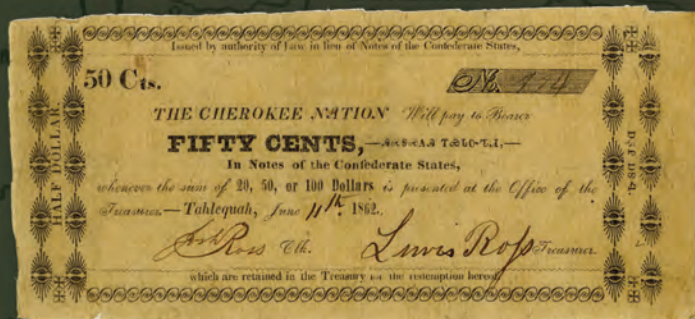 Issued by authority of Law in lieu of Notes of the Confederate States,
50 Cts.
No.
THE CHEROKEE NATION Will pay to Bearer
FIFTY CENTS,—
In Notes of the Confederate States,
whenever the sum of 20, 50, or 100 Dollars is presented at the Office of the
Treasurer.—Tahlequah, June 11th 1862.
Ross Clk. Lewis Ross Treasurer.
which are retained in the Treasury for the redemption hereof.
HALF DOLLAR.